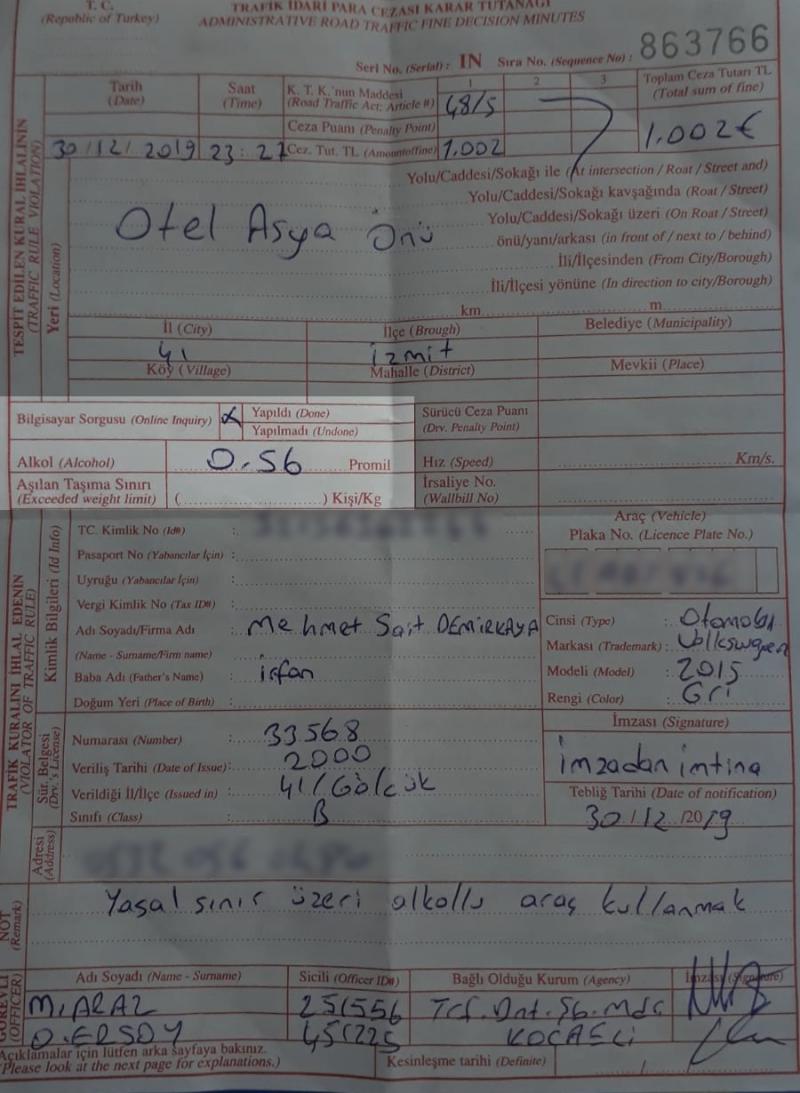 T. C.
(Republic of Turkey)
TRAFİK İDARİ PARA CEZASI KARAR TUTANAĞI
ADMINISTRATIVE ROAD TRAFFIC FINE DECISION MINUTES
Seri No. (Serial) : IN Sıra No. (Sequence No) : 863766
TESPİT EDİLEN KURAL İHLALININ
(TRAFFIC RULE VIOLATION)
Tarih
(Date)
Saat
(Time)
K. T. K.'nun Maddesi
(Road Traffic Act; Article #)
1 2 3
48/5
Toplam Ceza Tutarı TL
(Total sum of fine)
Ceza Puanı (Penalty Point)
1.002€
30/12/2019 23:27 Cez. Tut. TL (Amountoffine) 1.002
Yeri (Location)
Yolu/Caddesi/Sokağı ile (At intersection / Roat / Street and)
Yolu/Caddesi/Sokağı kavşağında (Roat / Street)
Yolu/Caddesi/Sokağı üzeri (On Roat / Street)
Otel Asya Önü
önü/yanı/arkası (in front of / next to / behind)
İli/İlçesinden (From City/Borough)
İli/İlçesi yönüne (In direction to city/Borough)
km m
İl (City) İlçe (Brough) Belediye (Municipality)
41 izmit
Köy (Village) Mahalle (District) Mevkii (Place)
Bilgisayar Sorgusu (Online Inquiry) Yapıldı (Done)
Yapılmadı (Undone)
Sürücü Ceza Puanı
(Drv. Penalty Point)
Alkol (Alcohol) 0.56 Promil Hız (Speed) Km/s.
Aşılan Taşıma Sınırı
(Exceeded weight limit) ( ) Kişi/Kg
İrsaliye No.
(Wallbill No)
TRAFİK KURALINI İHLAL EDENİN
(VIOLATOR OF TRAFFIC RULE)
Kimlik Bilgileri (Id Info)
TC. Kimlik No (Id#) :
Pasaport No (Yabancılar İçin) :
Uyruğu (Yabancılar İçin) :
Vergi Kimlik No (Tax ID#) :
Adı Soyadı/Firma Adı : Mehmet Sait DEMİRKAYA
(Name - Surname/Firm name)
Baba Adı (Father's Name) : irfan
Doğum Yeri (Place of Birth) :
Araç (Vehicle)
Plaka No. (Licence Plate No.)
Cinsi (Type) : Otomobil
Markası (Trademark) : Volkswgren
Modeli (Model) : 2015
Rengi (Color) : Gri
Sür. Belgesi
(Drv.'s License)
Numarası (Number) : 33568
Veriliş Tarihi (Date of Issue) : 2000
Verildiği İl/İlçe (Issued in) : 41/Gölcük
Sınıfı (Class) : B
İmzası (Signature)
İmzadan imtina
Tebliğ Tarihi (Date of notification)
30/12/2019
Adresi
(Address)
NOT
(Remark)
Yasal sınır üzeri alkollu araç kullanmak
GÖREVLİ
(OFFICER)
Adı Soyadı (Name - Surname) Sicili (Officer ID#) Bağlı Olduğu Kurum (Agency) İmzası (Signature)
M.ARAZ 251556 Tcf.Dnt.Şb.Mdc
O.ERSOY 451225 KOCAELİ
Açıklamalar için lütfen arka sayfaya bakınız.
(Please look at the next page for explanations.)
Kesinleşme tarihi (Definite) : / /